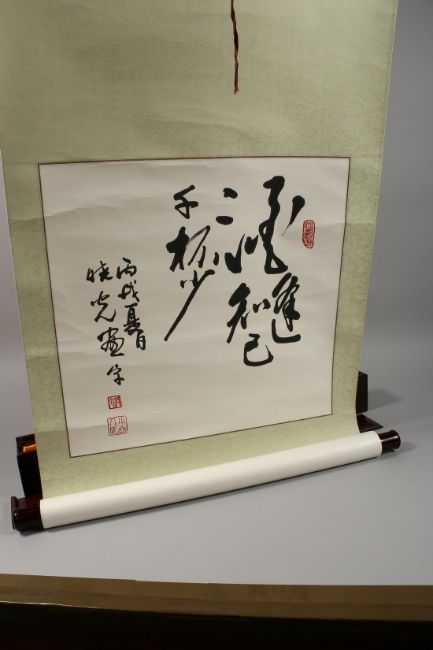 酒逢
知己
千杯少
丙戌夏日
晓光画字